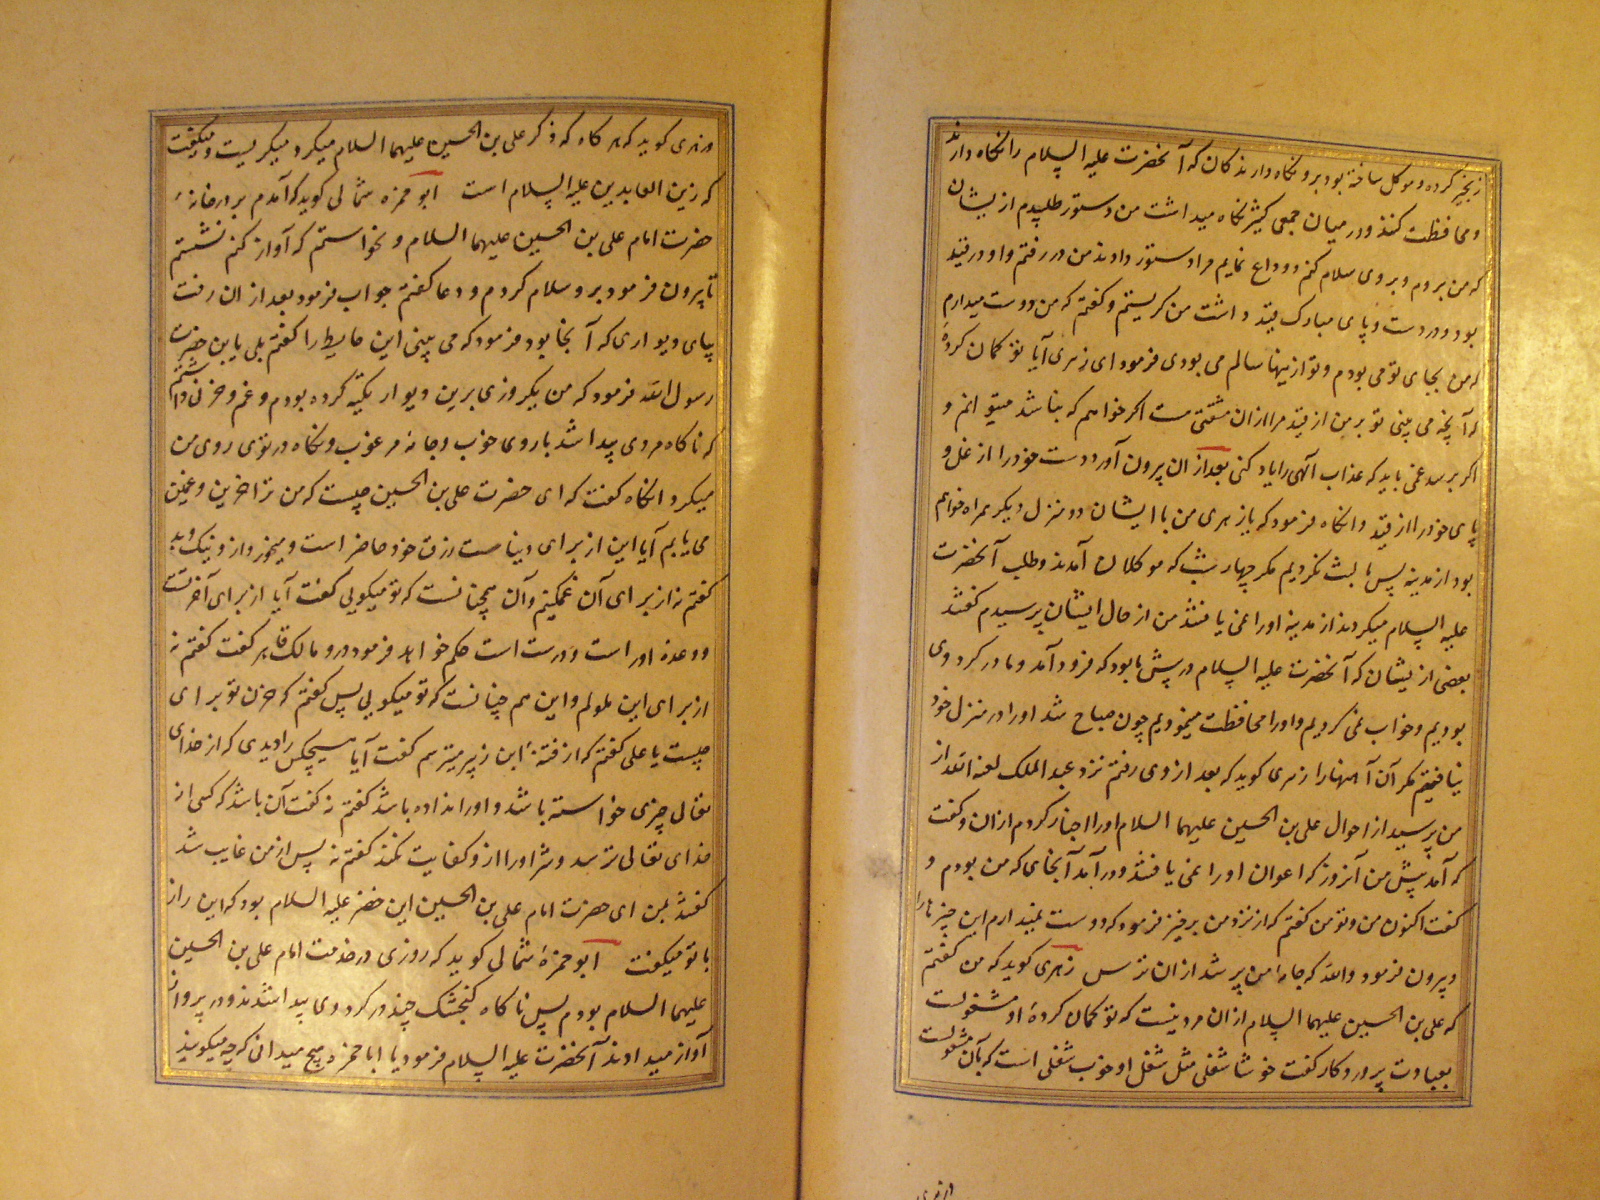 زنجیر کرده و موکل ساخته بود برو نکاه دارند کان که آنحضرت علیه السلام را نکاه دارند
و محافظت کنند و در میان جمعی کثیر نکاه میداشت من دستور طلبیدم از یشان
که من بروم و بر وی سلام کنم و وداع نمایم مرا دستور دادند من در رفتم و او در قید
بود و در دست و پای مبارک قید داشت من کریستم و کفتم که من دوست میدارم
که من بجای تو می بودم و تو ازینها سالم می بودی فرمود ای زهری آیا تو کمان کردهٔ
که آنچه می بینی تو بر من از قید مرا از ان مشقتی ست اکر خواهم که نباشد میتوانم و
اکر برسد غمی باید که عذاب الهی را یاد کنی بعد از ان بیرون آورد دست خود را از غل و
پای خود را از قید و انکاه فرمود که یا زهری من با ایشان دو منزل دیکر همراه خواهم
بود از مدینه پس ما لبث نکردیم مکر چهار شب که موکلان آمدند و طلب آنحضرت
علیه السلام میکردند از مدینه او را نمی یافتند من از حال ایشان پرسیدم کفتند
بعضی از یشان که آنحضرت علیه السلام در پیش ما بود که فرود آمد و ما در کرد وی
بودیم و خواب نمی کردیم و او را محافظت مینمودیم چون صباح شد او را در منزل خود
نیافتیم مکر آن آهنها را زهری کوید که بعد از وی رفتم نزد عبد الملک لعنه الله از
من پرسید از احوال علی بن الحسین علیهما السلام او را اخبار کردم از ان و کفت
که آمد پیش من آنروز که اعوان او را نمی یافتند و در آمد آنجای که من بودم و
کفت اکنون من و تو من کفتم که از نزد من برخیز فرمود که دوست نمیدارم این چیز را
و بیرون فرمود و الله که جامهٔ من پر شد از ان ترس زهری کوید که من کفتم
که علی بن الحسین علیهما السلام از ان مرد نیست که تو کمان کردهٔ او مشغولست
بعبادت پروردکار کفت خوشا شغلی مثل شغل او خوب شغلی است که بآن مشغولست
و زهری کوید که هر کاه که ذکر علی بن الحسین علیهما السلام میکرد میکریست و میکفت
که زین العابدین علیه السلام است ابو حمزه شمالی کوید که آمدم بر در خانهٔ
حضرت امام علی بن الحسین علیهما السلام و نخواستم که آواز کنم نشستم
تا بیرون فرمود برو سلام کردم و دعا کفتم جواب فرمود بعد از ان رفت
بپای دیواری که آنجا بود فرمود که می بینی این حایط را کفتم بلی یا بن حضرت
رسول الله فرمود که من یکروزی برین دیوار تکیه کرده بودم و غم و حزنی داشتم
که ناکاه مردی پیدا شد با روی خوب و جامه مرغوب و نکاه در توی روی من
میکرد انکاه کفت که ای حضرت علی بن الحسین چیست که من ترا حزین و غمین
می یابم آیا این از برای دنیاست رزق خود حاضر است و میخورد از و نیک و بد
کفتم نه از برای آن غمکینم و آن همچنانست که تو میکویی کفت آیا از برای آخرتست
و وعده او راست و درست است حکم خواهد فرمود درو مالک قاهر کفت کفتم نه
از برای این ملولم و این هم چنانست که تو میکویی پس کفتم که حزن تو برای
چیست یا علی کفتم که از فتنهٔ ابن زبیر میترسم کفت آیا هیچکس را دیدی که از خدای
تعالی چیزی خواسته باشد و او را نداده باشد کفتم نه کفت آن باشد که کسی از
خدای تعالی ترسد و شر او را از و کفایت نکند کفتم نه پس از من غایب شد
کفتند بمن ای حضرت امام علی بن الحسین این خضر علیه السلام بود که این راز
با تو میکفت ابو حمزهٔ شمالی کوید که روزی در خدمت امام علی بن الحسین
علیهما السلام بودم پس ناکاه کنجشک چند در کرد وی پیدا شدند و در پرواز
آواز میدادند آنحضرت علیه السلام فرمود یا ابا حمزه هیچ میدانی که چه میکویند